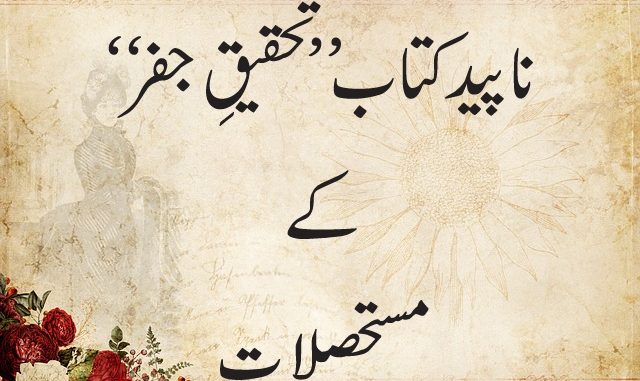 ناپید کتاب ’’تحقیقِ جفر‘‘
کے
مستحصلات